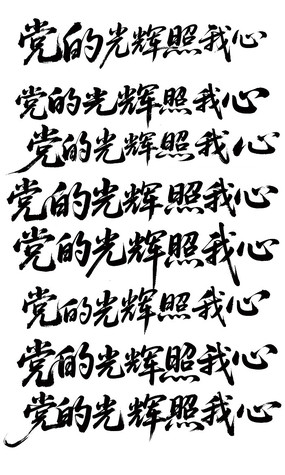 党的光辉照我心
党的光辉照我心
党的光辉照我心
党的光辉照我心
党的光辉照我心
党的光辉照我心
党的光辉照我心
党的光辉照我心